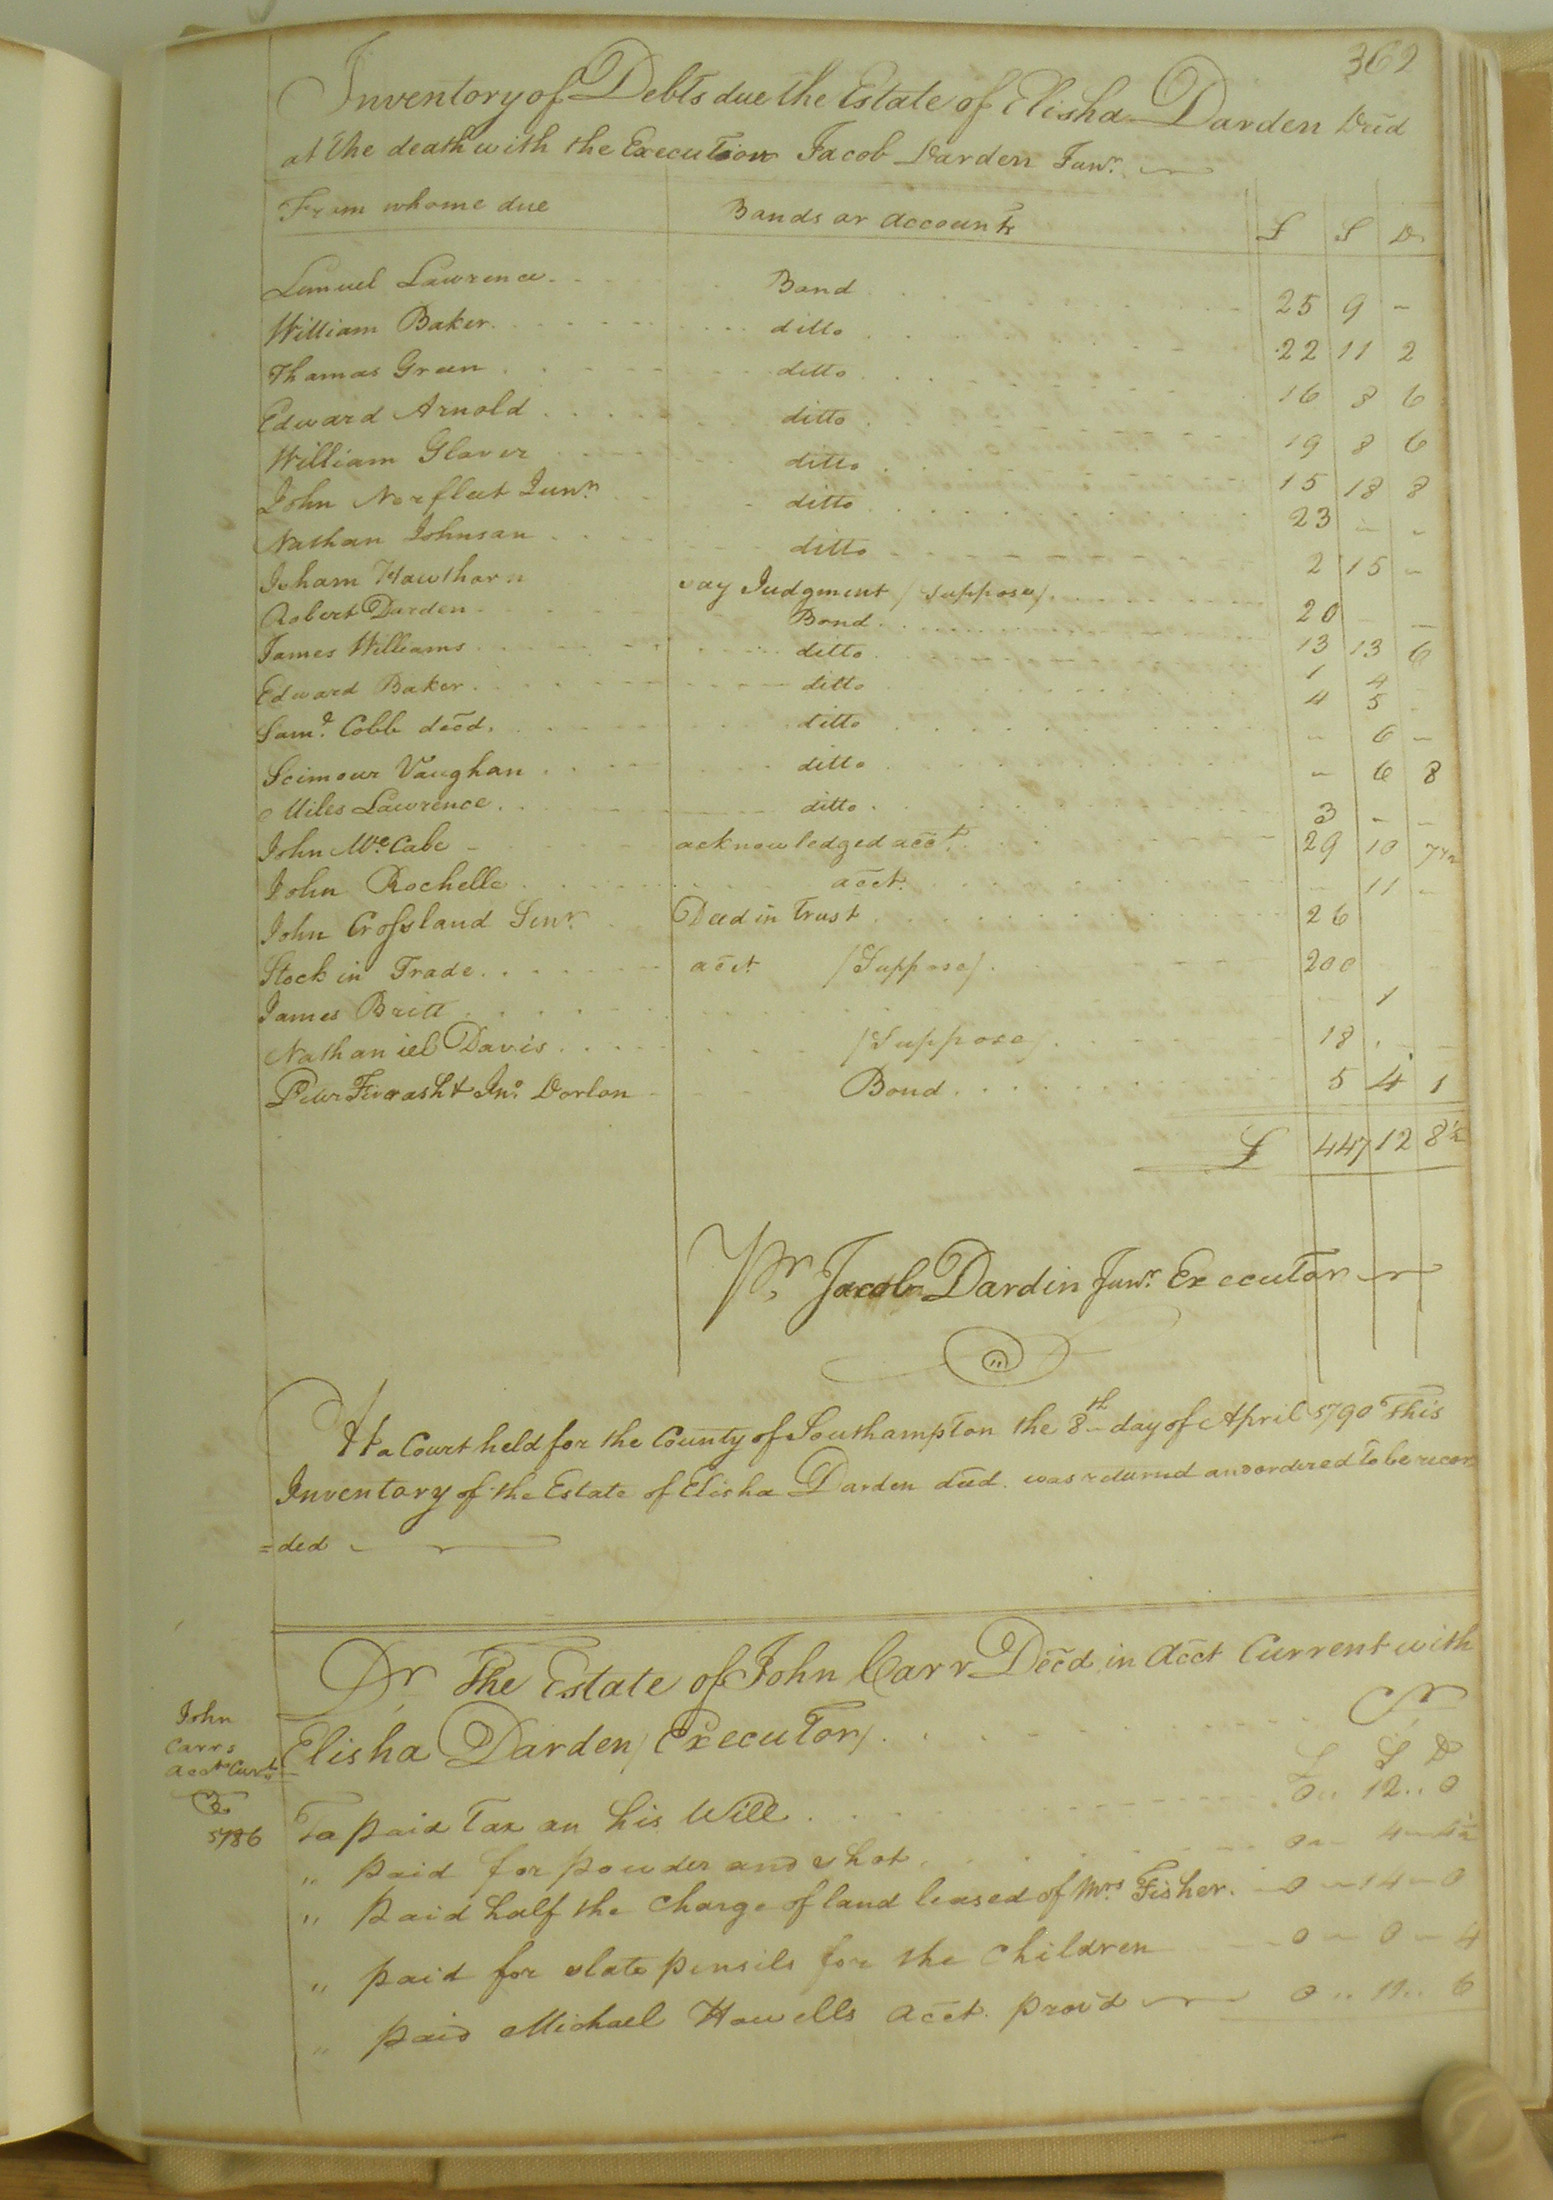 362
Inventory of Debts due the Estate of Elisha Darden Decd
at the death with the Execution Jacob Darden Junr.
From whome due Bonds or accounts £ S D
Lemuel Lawrence Bond 25 9 -
William Baker ditto 22 11 2
Thomas Green ditto 16 8 6
Edward Arnold ditto 19 8 6
William Glover ditto 15 18 8
John Norfleet Junr ditto 23 - -
Nathan Johnson ditto 2 15 -
Isham Hawthorn say Judgment / suppose / 20 - -
Robert Darden Bond 13 13 6
James Williams ditto 1 4 -
Edward Baker ditto 4 5 -
Saml. Cobb decd. ditto - 6 -
Seimour Vaughan ditto - 6 8
Miles Lawrence ditto 3 - -
John McCabe acknowledged acct. 29 10 7 1/2
John Rochelle acct. - 11 -
John Crossland Senr. Deed in Trust 26
Stock in Trade acct /Suppose/ 200 - -
James Britt - 1
Nathaniel Davis /Suppose/ 18 - -
& Jno. Dorlon Bond 5 4 1
£ 447 12 8½
Pr. Jacob Dardin Junr. Executor
At a Court held for the County of Southampton the 8th day of April 1790 This
Inventory of the Estate of Elisha Darden decd. was returned and ordered to be recor
=ded
Dr The Estate of John Carr Decd in Acct Current with
Elisha Darden / Executor / Cr
John
Carrs
Acct Curt
£ S D
1786 To paid Tax on his Will 0 .. 12 .. 0
" paid for powder and shot 0 - 4 - 4½
" paid half the charge of land leased of Mrs Fisher. 0 - 14 - 0
" paid for slate pensils for the Children 0 - 0 - 4
" paid Michael Howells Acct. provd 0 .. 12 .. 6